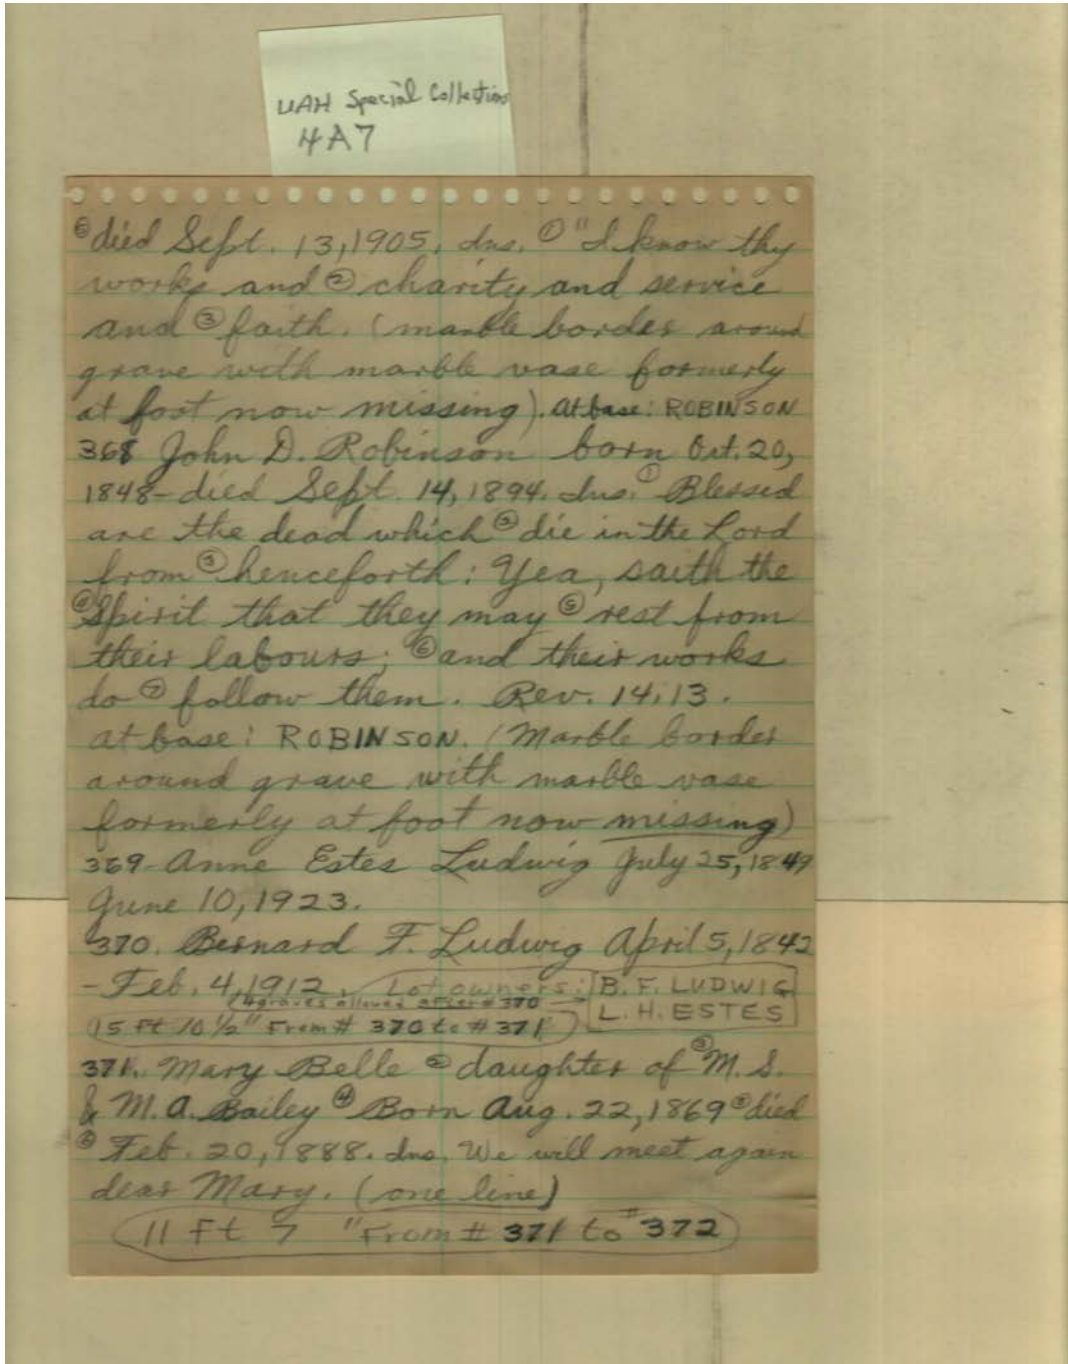 UAH Special Collections
4A7
⑥ died Sept. 13, 1905. Ins. ① "I know thy
works and ② charity and service
and ③ faith. (marble border around
grave with marble vase formerly
at foot now missing). At base: ROBINSON
368 John D. Robinson born Oct. 20,
1848 - died Sept. 14, 1894. Ins. ① Blessed
are the dead which ② die in the Lord
from ③ henceforth: Yea, saith the
④ Spirit that they may ⑤ rest from
their labours; ⑥ and their works
do ⑦ follow them. Rev. 14:13.
at base: ROBINSON. (Marble border
around grave with marble vase
formerly at foot now missing)
369- Anne Estes Ludwig July 25, 1849
June 10, 1923.
370. Bernard F. Ludwig April 5, 1842
- Feb. 4, 1912. Lot owners: B. F. LUDWIG
graves allowed after #370 → L. H. ESTES
15 Ft 10 1/2" From # 370 to # 371
371. Mary Belle ② daughter of ③ M. S.
& M. A. Bailey ④ Born Aug. 22, 1869 ⑤ died
⑥ Feb. 20, 1888. Ins. We will meet again
dear Mary. (one line)
11 Ft 7 " From # 371 to # 372